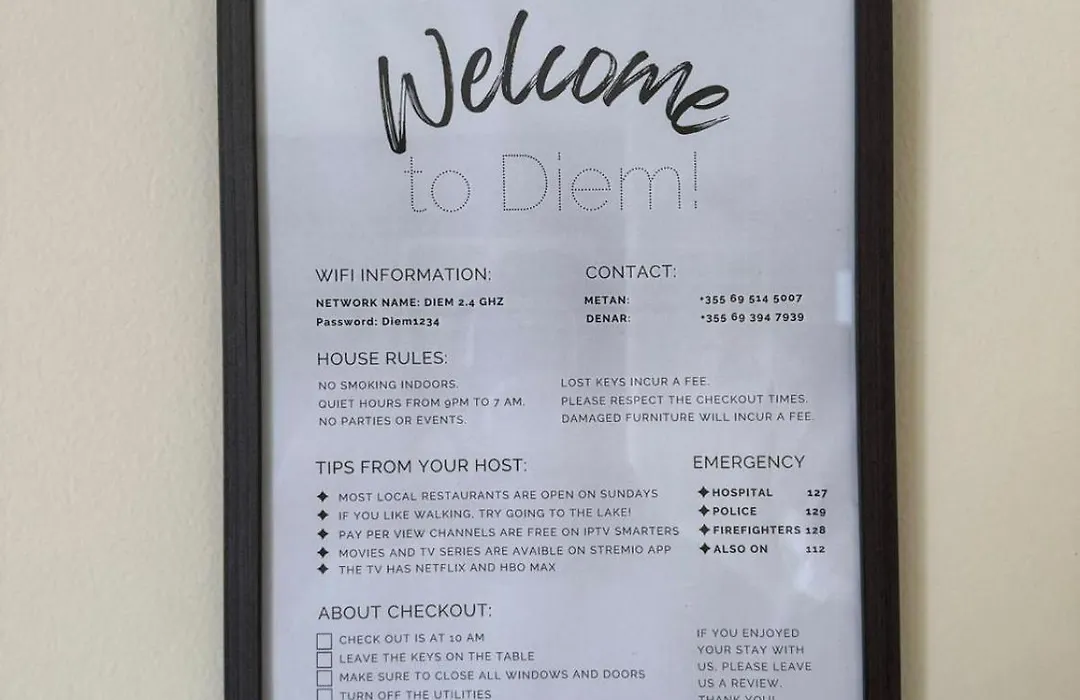 Welcome
to Diem!
WIFI INFORMATION:
NETWORK NAME: DIEM 2.4 GHZ
Password: Diem1234
CONTACT:
METAN: +355 69 514 5007
DENAR: +355 69 394 7939
HOUSE RULES:
NO SMOKING INDOORS.
QUIET HOURS FROM 9PM TO 7 AM.
NO PARTIES OR EVENTS.
LOST KEYS INCUR A FEE.
PLEASE RESPECT THE CHECKOUT TIMES.
DAMAGED FURNITURE WILL INCUR A FEE.
TIPS FROM YOUR HOST:
MOST LOCAL RESTAURANTS ARE OPEN ON SUNDAYS
IF YOU LIKE WALKING, TRY GOING TO THE LAKE!
PAY PER VIEW CHANNELS ARE FREE ON IPTV SMARTERS
MOVIES AND TV SERIES ARE AVAIBLE ON STREMIO APP
THE TV HAS NETFLIX AND HBO MAX
EMERGENCY
HOSPITAL 127
POLICE 129
FIREFIGHTERS 128
ALSO ON 112
ABOUT CHECKOUT:
CHECK OUT IS AT 10 AM
LEAVE THE KEYS ON THE TABLE
MAKE SURE TO CLOSE ALL WINDOWS AND DOORS
TURN OFF THE UTILITIES
IF YOU ENJOYED
YOUR STAY WITH
US, PLEASE LEAVE
US A REVIEW.
THANK YOU!